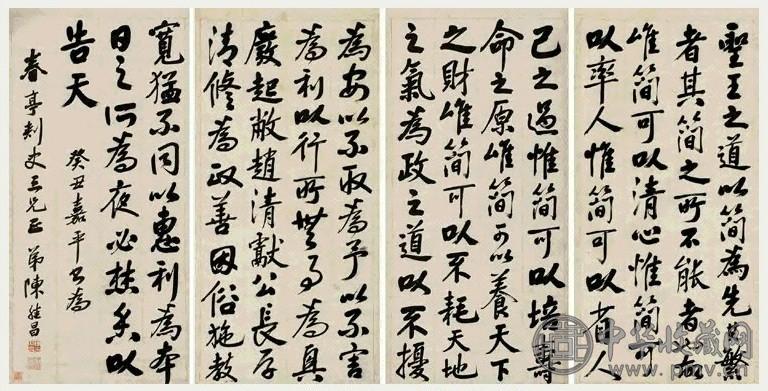 聖王之道以簡為先其繁
者其簡之所不能者歟
唯簡可以清心惟簡可
以率人惟簡可以省人
己之過惟簡可以培壽
命之原唯簡可以養天下
之財唯簡可以不耗天地
之氣為政之道以不擾
為安以不取為予以不害
為利以行所無事為興
廢起敝趙清獻公長厚
清修為政善因俗施教
寬猛不同以惠利為本
日之所為夜必焚香以
告天
癸丑嘉平書為
春亭刺史三兄正 弟陳繼昌
中华收藏网